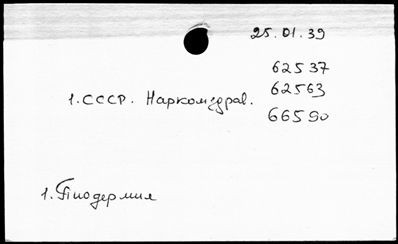 25.01.39
62537
62563
1. СССР. Наркомздрав.
66590
1. Пиодермия